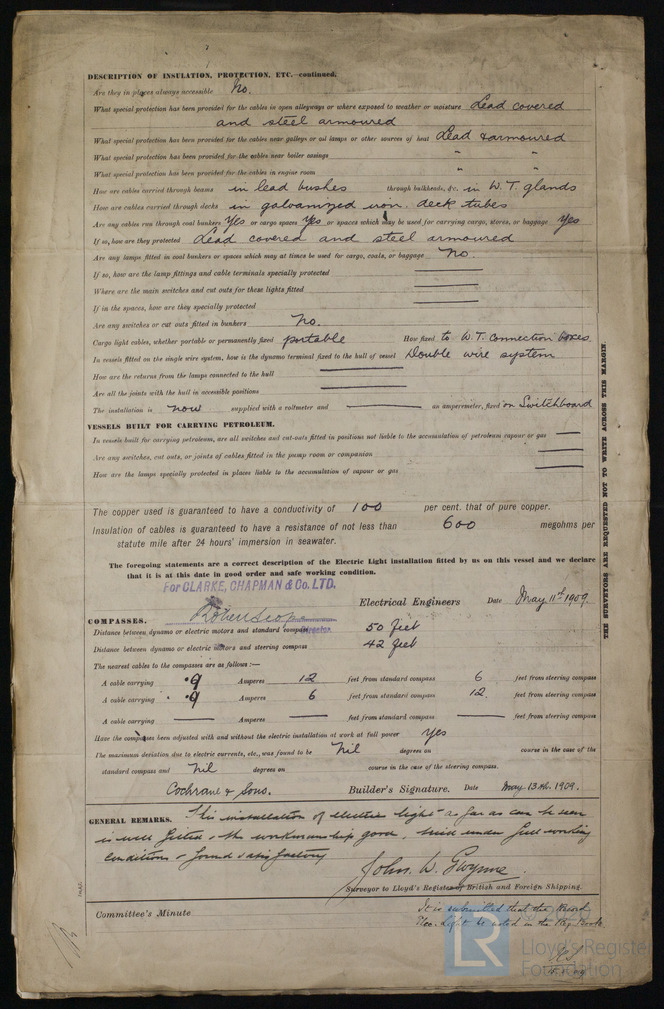 DESCRIPTION OF INSULATION, PROTECTION, ETC.—continued.
Are they in places always accessible No.
What special protection has been provided for the cables in open alleyways or where exposed to weather or moisture Lead covered
and steel armoured
What special protection has been provided for the cables near galleys or oil lamps or other sources of heat Lead & armoured
What special protection has been provided for the cables near boiler casings " "
What special protection has been provided for the cables in engine room " "
How are cables carried through beams in lead bushes through bulkheads, &c. in W.T. glands
How are cables carried through decks in galvanized iron deck tubes
Are any cables run through coal bunkers Yes or cargo spaces Yes or spaces which may be used for carrying cargo, stores, or baggage Yes
If so, how are they protected Lead covered and steel armoured
Are any lamps fitted in coal bunkers or spaces which may at times be used for cargo, coals, or baggage No.
If so, how are the lamp fittings and cable terminals specially protected
Where are the main switches and cut outs for these lights fitted
If in the spaces, how are they specially protected
Are any switches or cut outs fitted in bunkers No.
Cargo light cables, whether portable or permanently fixed portable How fixed to W.T. connection boxes
In vessels fitted on the single wire system, how is the dynamo terminal fixed to the hull of vessel Double wire system
How are the returns from the lamps connected to the hull
Are all the joints with the hull in accessible positions
The installation is now supplied with a voltmeter and an amperemeter, fixed on Switchboard
VESSELS BUILT FOR CARRYING PETROLEUM.
In vessels built for carrying petroleum, are all switches and cut-outs fitted in positions not liable to the accumulation of petroleum vapour or gas
Are any switches, cut outs, or joints of cables fitted in the pump room or companion
How are the lamps specially protected in places liable to the accumulation of vapour or gas
The copper used is guaranteed to have a conductivity of 100 per cent. that of pure copper.
Insulation of cables is guaranteed to have a resistance of not less than 600 megohms per
statute mile after 24 hours' immersion in seawater.
The foregoing statements are a correct description of the Electric Light installation fitted by us on this vessel and we declare
that it is at this date in good order and safe working condition.
For CLARKE, CHAPMAN & Co. LTD.
Electrical Engineers Date May 11th 1909.
Director
COMPASSES.
Distance between dynamo or electric motors and standard compass 50 feet
Distance between dynamo or electric motors and steering compass 42 feet
The nearest cables to the compasses are as follows:—
A cable carrying .9 Amperes 12 feet from standard compass 6 feet from steering compass
A cable carrying .9 Amperes 6 feet from standard compass 12 feet from steering compass
A cable carrying Amperes feet from standard compass feet from steering compass
Have the compasses been adjusted with and without the electric installation at work at full power Yes
The maximum deviation due to electric currents, etc., was found to be Nil degrees on course in the case of the
standard compass and Nil degrees on course in the case of the steering compass.
Cochrane & Sons. Builder's Signature. Date May 13th. 1909.
GENERAL REMARKS. This installation of electric light as far as can be seen
is well fitted & the workmanship good, tried under full working
conditions & found satisfactory
John W. Gwynne.
Surveyor to Lloyd's Register of British and Foreign Shipping.
Committee's Minute
It is submitted that the Record
Elec. Light be noted in the Reg. Book.
THE SURVEYORS ARE REQUESTED NOT TO WRITE ACROSS THIS MARGIN
LR
Lloyd's Register
Foundation